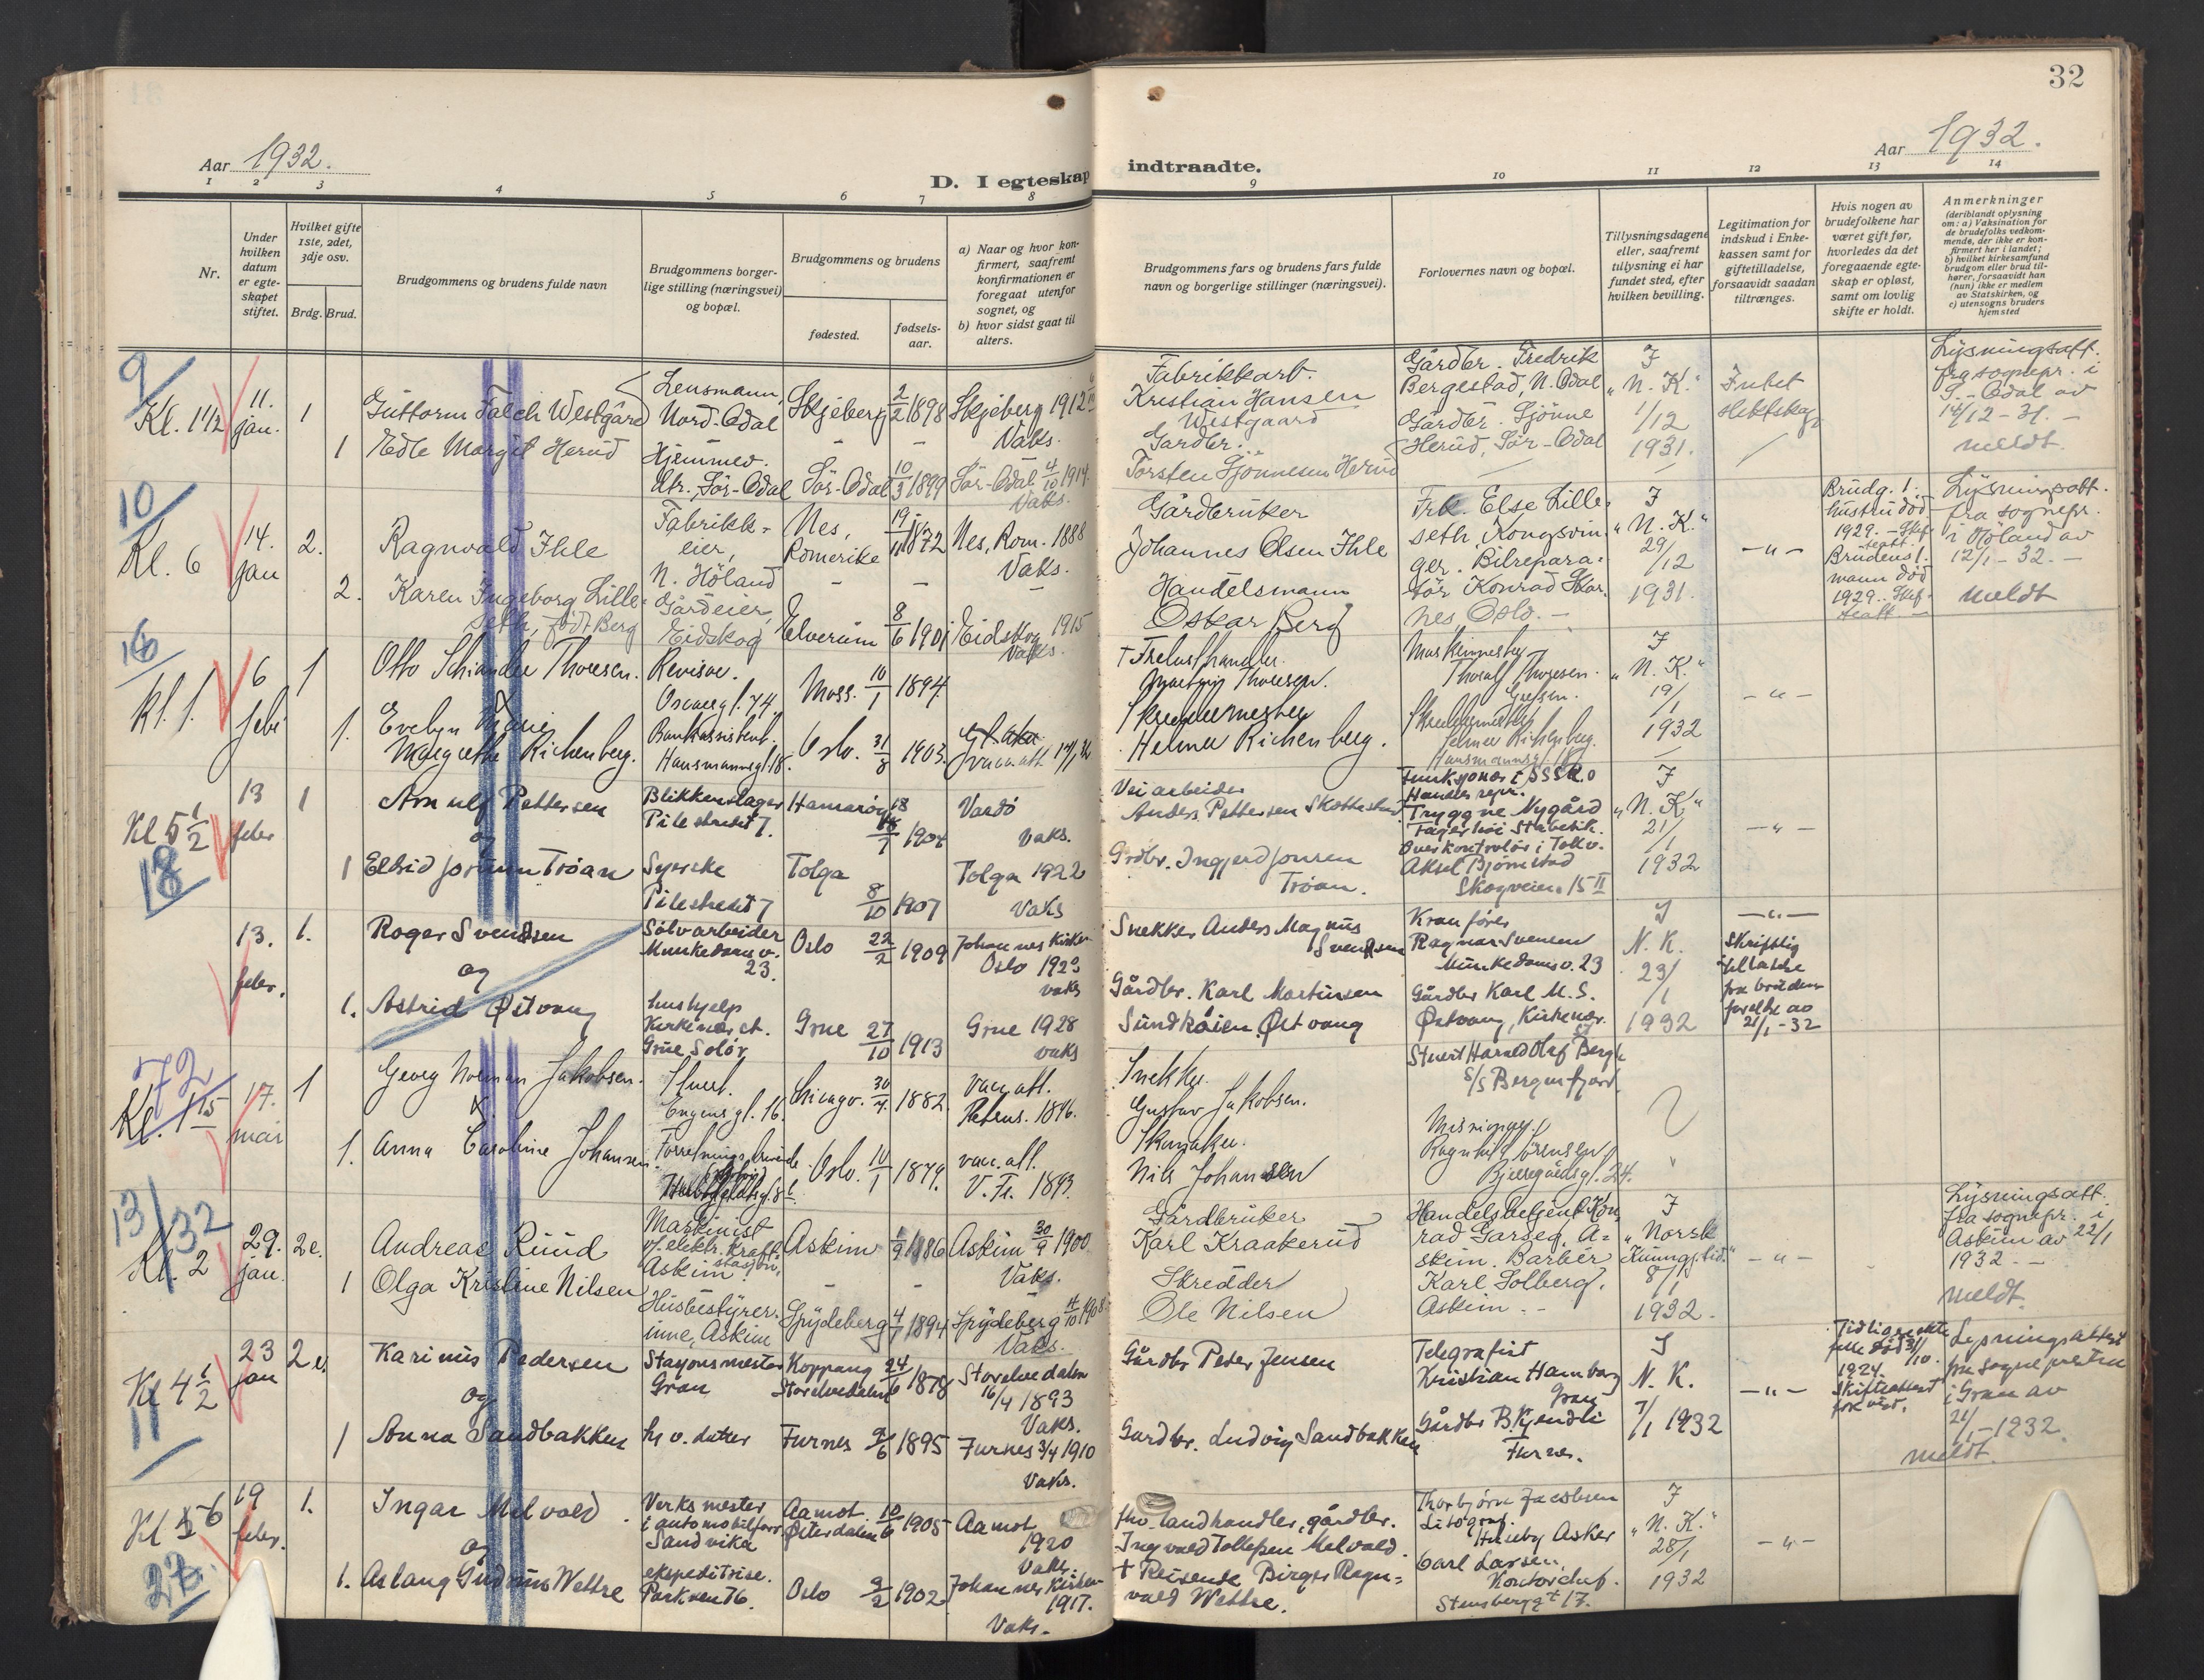 32
Aar 1932.
Aar 1932.
D. I egteskap indtraadte.
1 2 3 4 5 6 7 8 9 10 11 12 13 14
Nr.
Under hvilken datum er egteskapet stiftet.
Hvilket gifte 1ste, 2det, 3dje osv.
Brdg. Brud.
Brudgommens og brudens fulde navn
Brudgommens borgerlige stilling (næringsvei) og bopæl.
Brudgommens og brudens
fødested.
fødselsaar.
a) Naar og hvor konfirmert, saafremt konfirmationen er foregaat utenfor sognet, og
b) hvor sidst gaat til alters.
Brudgommens fars og brudens fars fulde navn og borgerlige stillinger (næringsvei).
Forlovernes navn og bopæl.
Tillysningsdagene eller, saafremt tillysning ei har fundet sted, efter hvilken bevilling.
Legitimation for indskud i Enkekassen samt for giftetilladelse, forsaavidt saadan tiltrænges.
Hvis nogen av brudefolkene har været gift før, hvorledes da det foregaaende egteskap er opløst, samt om lovlig skifte er holdt.
Anmerkninger
(deriblandt oplysning om: a) Vaksination for de brudefolks vedkommende, der ikke er konfirmert her i landet;
b) hvilket kirkesamfund brudgom eller brud tilhører, forsaavidt han (nun) ikke er medlem av Statskirken, og
c) utensogns bruders hjemsted
9
Kl. 1 1/2
11. jan.
1
Guttorm Falch Westgård
Lensmann, Nord-Odal
Skjeberg
2/2 1898
Skjeberg 1912
Vaks.
Fabrikkarb.
Kristian Hansen
Westgaard
Gårdbr. Fredrik
Bergestad, N. Odal
I
"N. K."
1/12
1931.
Intet
slektskap
Lysningsatt.
fra sognepr. i
S.-Odal av
14/12-31.-
meldt.
1
Edle Margit Herud
Hjemmev.
dtr., Sör-Odal
Sör-Odal
10/3 1899
Sör-Odal 4/10 1914.
Vaks.
Gardbr.
Torsten Gjönnesen Herud
Gårdbr. Gjönne
Herud, Sör-Odal
10
Kl. 6
14. jan
2.
Ragnvald Ihle
Fabrikkeier,
N. Höland
Nes, Romerike
19/11 1872
Nes, Rom. 1888
Vaks.
Gårdbruker
Johannes Olsen Ihle
Frk. Else Lilleseth, Kongsvinger. Bilreparatör Konrad Skarnes, Oslo.-
I
"N. K."
29/12
1931.
-"-
Brudg. 1.
hustru död
1929.-Skifteatt.
Brudens 1.
mann död
1929.-Skifteatt.-
Lysningsatt.
fra sognepr.
i Höland av
12/1-32.-
meldt
2.
Karen Ingeborg Lilleseth, född Berg
Gårdeier,
Eidskog
Elverum
8/6 1901
Eidskog 1915
Vaks.
Handelsmann
Oskar Berg
16
Kl. 1.
6 feb
1
Otto Schiander Thoresen.
Revisor.
Oscarsgt. 74.
Moss.
10/1 1894
Thoresen.
Thoralf Thoresen.
Grefsen.
I
"N. K."
19/1
1932
-"-
&
1.
Evelyn Marie
Margrethe Richenberg.
Bankassistent.
Hausmannsgt. 18.
Oslo.
31/8 1903.
Vacc. att.
Skreddermester
Helmer Richenberg.
Skreddermester
Helmer Richenberg.
Hausmannsgt. 18
Kl 5 1/2
18
13 febr
1
Arnulf Pettersen
og
Blikkenslager
Pilestredet 7.
Hamarøy
18/7 1904
Vardö
Vaks.
Veiarbeider
Anders Pettersen
Handelsrepr.
Tryggve Nygård
Fagerhöi Stabekk.
I
"N. K."
21/1
1932
-"-
1
Eldrid Jorunn Tröan
Syerske
Pilestredet 7
Tolga
8/10 1907
Tolga 1922
Vaks
Grdbr. Ingjerd Jonsen
Tröan.
Overkontrolör i Tollv.
Aksel Bjørnstad
Skogveien 15 II
13. febr.
1.
Roger Svendsen
og
Sölvarbeider
Munkedamsv.
23.
Oslo
22/2 1909
Johannes kirke
Oslo 1923
vaks
Snekker Anders Magnus
Svendsen
Kranfører
Ragnar Svensen
Munkedamsv. 23
I
N. K.
23/1
1932
-"-
Skriftlig
tillatelse
fra brudens
foreldre av
21/1-32
1.
Astrid Østvang
hushjelp
Kirkenær st.
Grue Solör
Grue
27/10 1913
Grue 1928
vaks
Gårdbr. Karl Martinsen
Sundkøien Østvang
Gårdbr Karl M. S.
Østvang, Kirkenær.
72
Kl. 1 15
17. mai
1
Georg Norman Jakobsen.
&
Stuert.
Engensgt. 16.
Chicago.
30/4 1882.
vacc. att.
Petrus. 1896.
Snekker.
Gustav Jakobsen.
Stuert Harald Olaf Bergh
S/S Bergensfjord
1.
Anna Caroline Johansen
Oslo.
10/1 1879.
vac. att.
V. Fr. 1893.
Skomaker.
Nils Johansen
Ragnhild Sörensen
Bjerregårdsgt. 24.
13/32
Kl. 2
29. jan.
2.
Andreas Ruud
Maskinist
v/ elektr. kraftstasjon,
Askim
Askim
1/9 1886
Askim 30/9 1900
Vaks.
Gårdbruker
Karl Kraakerud
Handelsbetjent Konrad Garseg, Askim. Barber
Karl Solberg,
Askim.-
I
"Norsk
Kunngj.tid."
8/1
1932.
-"-
Lysningsatt.
fra sognepr. i
Askim av 22/1
1932.-
meldt.
1
Olga Kristine Nilsen
Husbestyrerinne, Askim
Spydeberg
4/1 1894
Spydeberg 11/10 1908
Vaks.
Skredder
Ole Nilsen
Kl 4 1/2
11
23 jan
2.
Karinus Pedersen
og
Stasjonsmester
Gran
Koppang
Storelvedalen
24/6 1878
Storelvedalen
16/4 1893
Vaks.
Gårdbr Peder Jensen
Telegrafist
Kristian Hamborg
Gran
I
N. K.
7/1 1932
-"-
Tidligere ekte
felle död 31/10
1924.
Skifteattest
forevist.
Lysningsattest
fra sogneprestem
i Gran av
21/1-1932.
meldt.
1
Anna Sandbakken
hj. v. datter
Furnes
9/6 1895
Furnes 3/4 1910
Vaks.
Gardbr. Ludvig Sandbakken
Gårdbr B. Kjendli
Furnes.
Kl 5 6
27.
19 febr.
1.
Ingar Melvold
og
Verksmester
i automobilforr.
Sandvika
Aamot
Østerdalen
10/6 1905
Aamot
1920
Vaks.
fhv. landhandler, gårdbr.
Ingvald Tollefsen Melvold.
Thorbjørn Jacobsen
Litograf.
Huseby Asker
I
"N. K."
28/1
1932
-"-
1.
Aslaug Gudrun Wettre
ekspeditrise.
Parkvei 76.
Oslo
9/2 1902
Johannes kirke
1917.
Vaks.
† Reisende Birger Ragnvald Wettre.
Carl Larsen
Kontorchef.
Stensberggt 17.